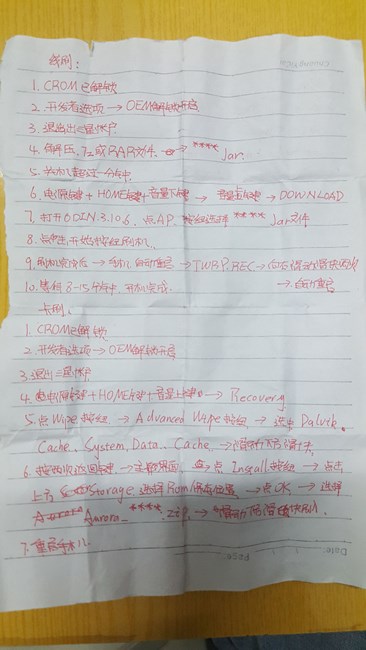 线刷:
1. CROM已解锁
2. 开发者选项 → OEM解锁开启
3. 退出三星账户
4. 解压.7z或RAR文件. → **** Jar.
5. 关机超过一分钟
6. 电源键 + HOME键 + 音量下键 → 音量上键 → DOWNLOAD
7. 打开ODIN.3.10.6. 点AP. 按钮选择 **** Jar文件
8. 点 开始按钮刷机.
9. 刷机完成后 → 手机自动重启 → TWRP.REC → 向右滑动滑块
→ 自动重启
10. 等待8-15分钟. 开机完成.
卡刷:
1. CROM已解锁
2. 开发者选项 → OEM解锁开启
3. 退出三星账户
4. 电源键 + HOME键 + 音量上键 → Recovery
5. 点Wipe按钮 → Advanced Wipe按钮 → 选中Dalvik.
Cache、System、Data、Cache → 滑动下方滑块.
6. 按 返回键 → 主界面. 点Install按钮 → 点击
上方Storage.选择Rom保存位置 → 点OK → 选择
Aurora_****.zip. → 滑动
7. 重启手机.
Date Page